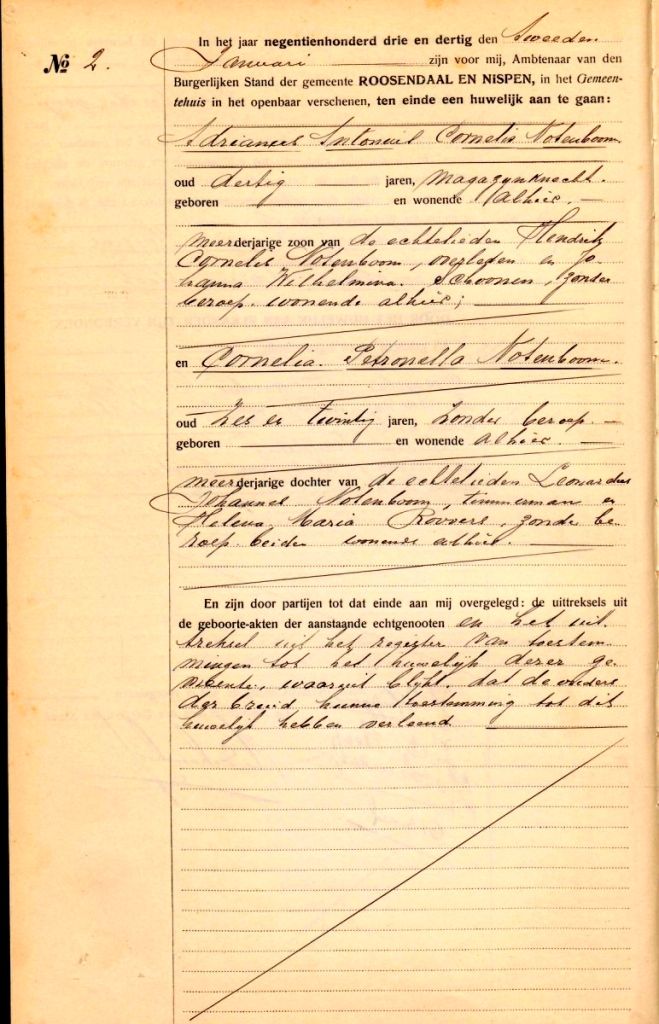 In het jaar negentienhonderd drie en dertig den tweeden
No 2. Januari zijn voor mij, Ambtenaar van den
Burgerlijken Stand der gemeente ROOSENDAAL EN NISPEN, in het Gemeen-
tehuis in het openbaar verschenen, ten einde een huwelijk aan te gaan:
Adrianus Antonius Cornelis Notenboom.
oud dertig jaren, magazynknecht.
geboren en wonende alhier.
meerderjarige zoon van de echtelieden Hendrik
Cornelis Notenboom, overleden en Jo-
hanna Wilhelmina Schoonen, zonder
beroep. wonende alhier;
en Cornelia Petronella Notenboom.
oud Zes en twintig jaren, zonder beroep.
geboren en wonende alhier.
meerderjarige dochter van de echtelieden Leonardus
Johannes Notenboom, timmerman en
Helena Maria Roovers, zonder be-
roep beiden wonende alhier.
En zijn door partijen tot dat einde aan mij overgelegd: de uittreksels uit
de geboorte-akten der aanstaande echtgenooten en het uit-
treksel uit het register van toestem-
mingen tot het huwelijk dezer ge-
meente, waaruit blijkt, dat de ouders
der bruid hunne toestemming tot dit
huwelijk hebben verleend